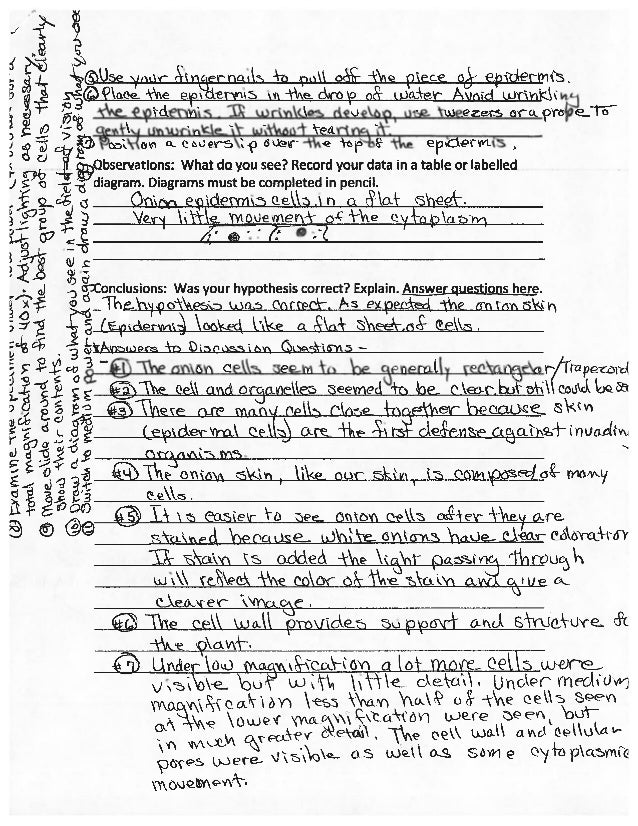 ⑤ Use your fingernails to pull off the piece of epidermis.
⑥ Place the epidermis in the drop of water Avoid wrinkling
the epidermis. If wrinkles develop, use tweezers or a probe to
gently unwrinkle it without tearing it.
⑦ Position a coverslip over the top of the epidermis.
Observations: What do you see? Record your data in a table or labelled
diagram. Diagrams must be completed in pencil.
Onion epidermis cells in a flat sheet.
Very little movement of the cytoplasm
Conclusions: Was your hypothesis correct? Explain. Answer questions here.
The hypothesis was correct. As expected the onion skin
(Epidermis) looked like a flat sheet of cells.
Answers to Discussion Questions -
#1 The onion cells seem to be generally rectangular/Trapezoid
#2 The cell and organelles seemed to be clear but still could be
#3 There are many cells close together because skin
(epidermal cells) are the first defense against invadin
organisms.
#4 The onion skin, like our skin, is composed of many
cells.
#5 It is easier to see onion cells after they are
stained because white onions have clear coloration
If stain is added the light passing through
will reflect the color of the stain and give a
clearer image.
#6 The cell wall provides support and structure
the plant.
#7 Under low magnification a lot more cells were
visible but with little detail. Under medium
magnification less than half of the cells seen
at the lower magnification were seen, but
in much greater detail. The cell wall and cellular
pores were visible as well as some cytoplasmic
movement.
Examine the specimen under low power
total magnification of 40x). Adjust lighting as necessary.
⑨ Move slide around to find the best group of cells that clearly
show their contents.
⑩ Draw a diagram of what you see in the field of vision
⑪ Switch to medium power and again draw a diagram of what you see